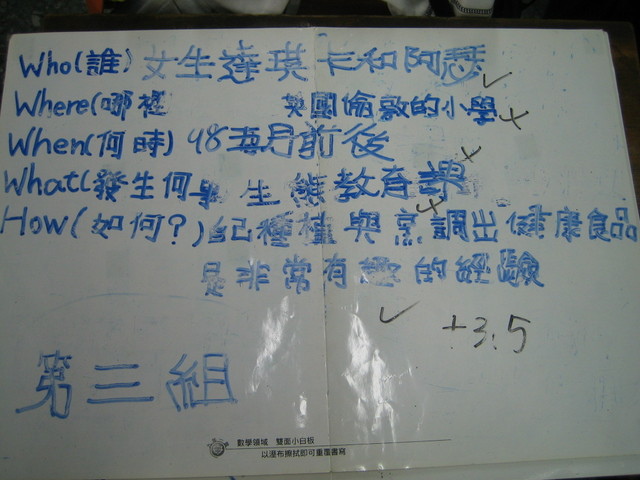 Who(誰) 女生達琪卡和阿瑟
Where(哪裡 英國倫敦的小學
When(何時) 月前後
What(發生何事 生態教育課
How(如何?)自己種植與烹調出健康食品
是非常有趣的經驗
+3.5
第三組
數學領域 雙面小白板
以溼布擦拭即可重覆書寫